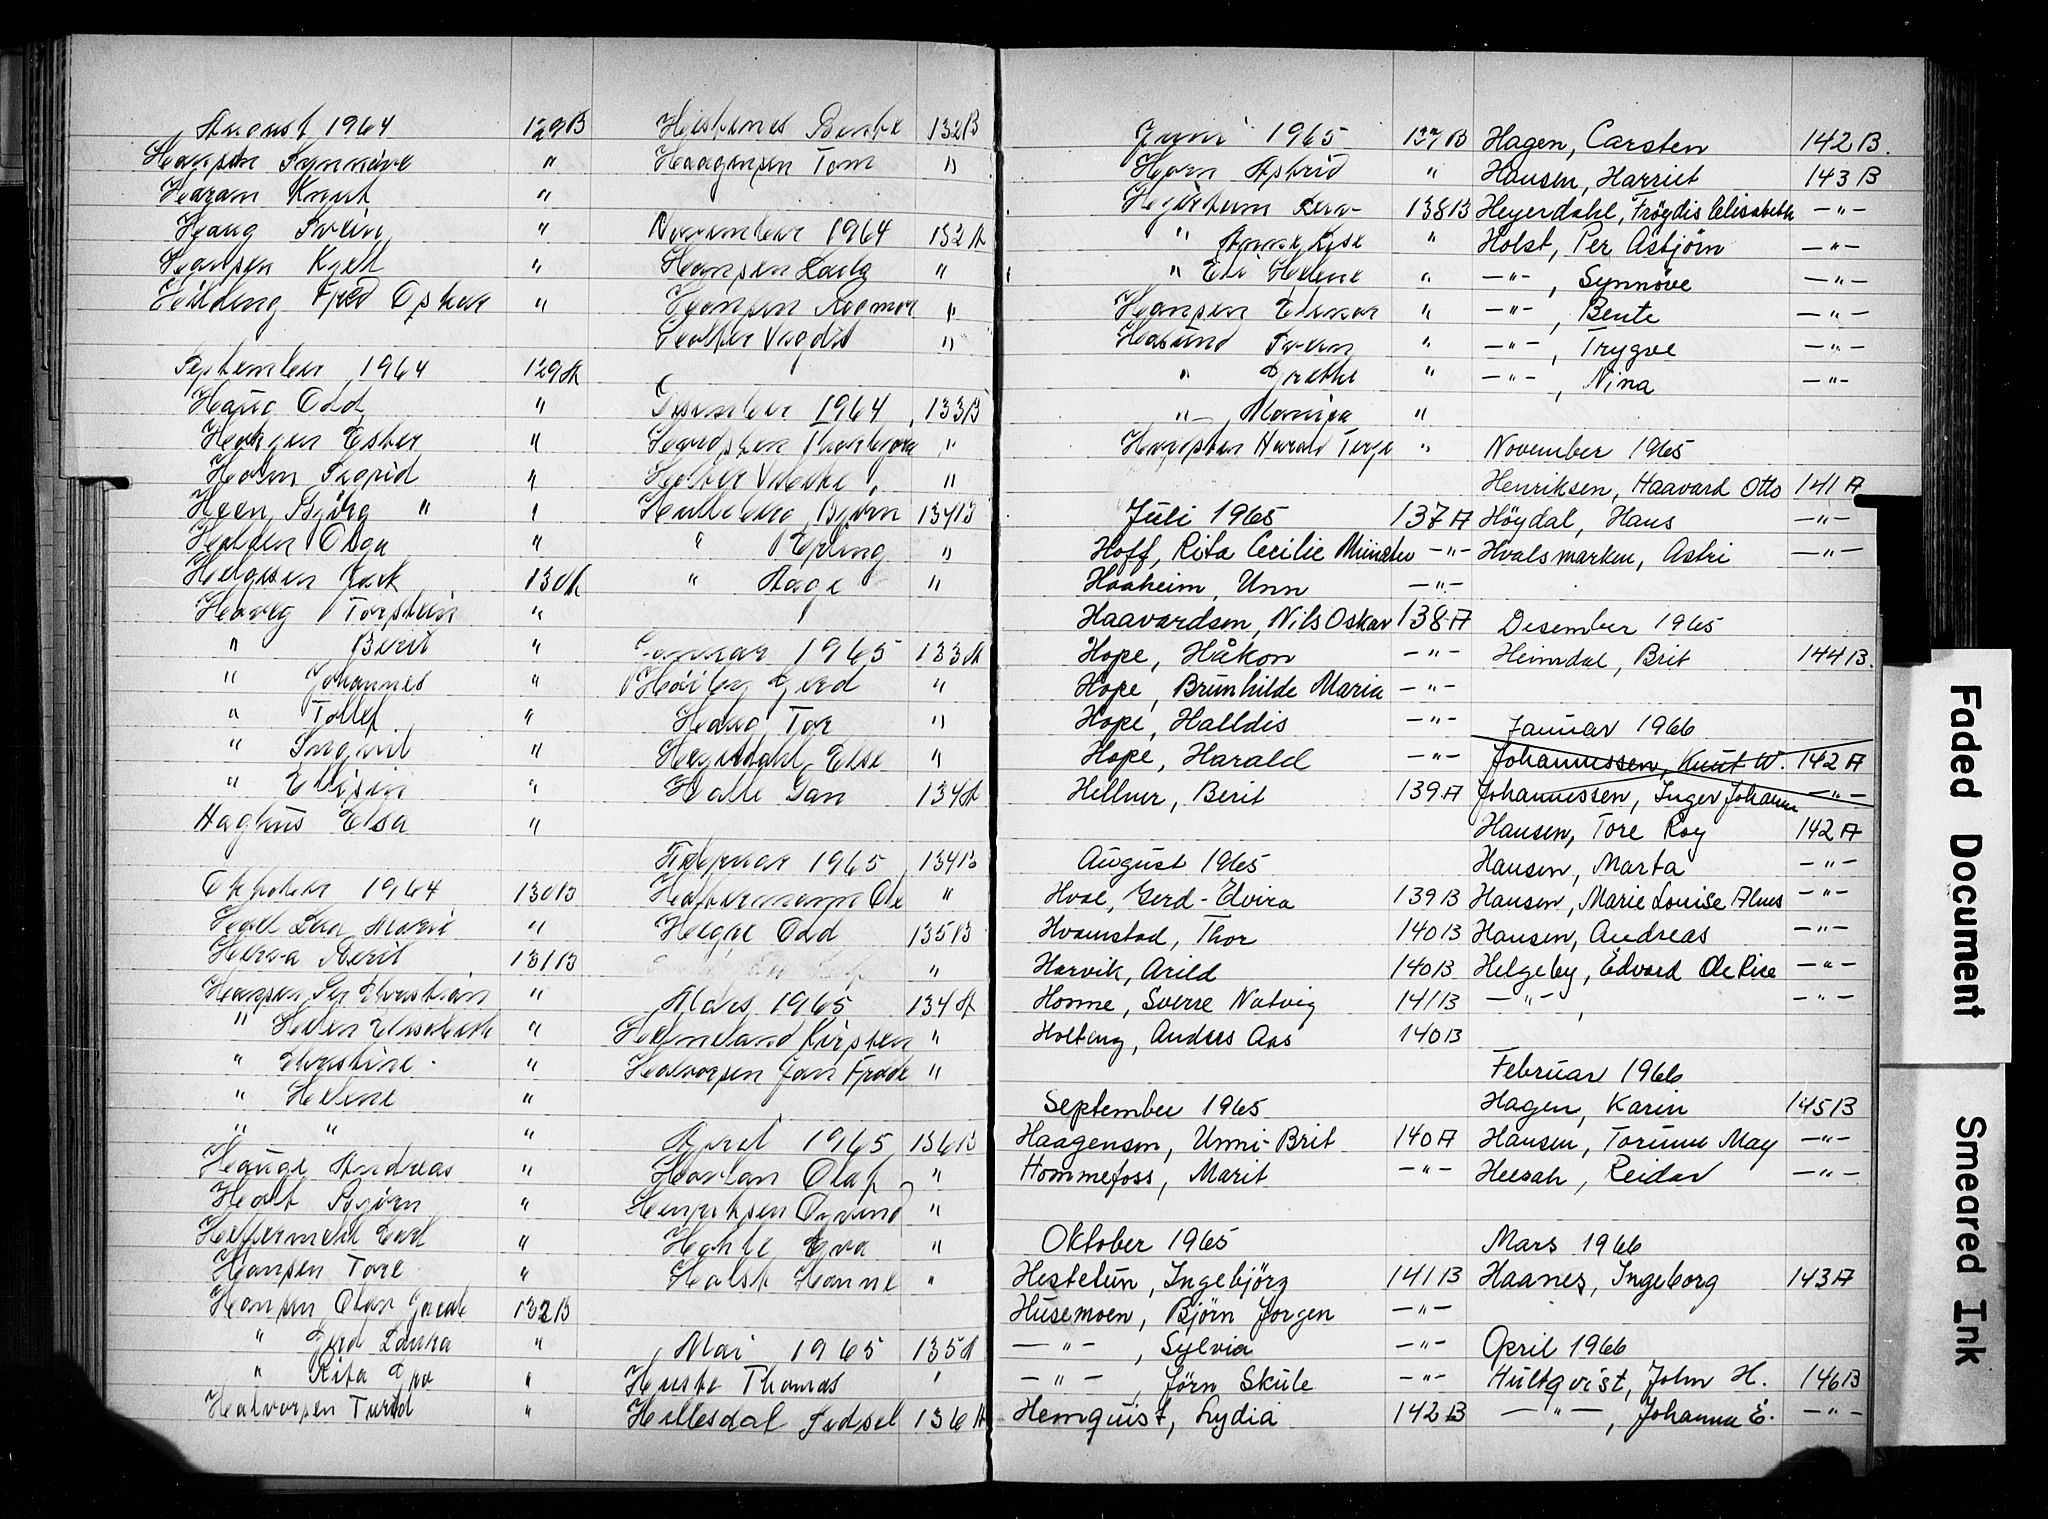 August 1964 129B
Hansen Synnøve "
Haram Knut "
Haug Svein "
Hansen Kjet "
Hilding Fred Oskar "
September 1964 129A
Haug Odd "
Haugen Ester "
Holm Sigrid "
Hoen Bjørg " "
Halden Olga "
Helgesen Jack 130A
Hoveg Torstein "
" Berit "
" Johannes "
" Tollef "
" Ingvil "
" Ellisin "
Haghus Elsa "
Oktober 1964 130B
Marie "
Berit 131B
Hansen Per Christian "
" Helen Elisabeth "
" Christine "
" Helene "
" " "
Hauge Andreas "
Holt Bjørn "
Carl "
Hansen Tore "
Hansen Olav 132B
" Gerd Laura "
" Rita "
Halvorsen Turid "
Bente 132B
Haagensen Tom "
November 1964 132A
Hansen Laila "
Hansen Rogmor "
Holter Vigdis "
Desember 1964 133B
Thorbjørn "
Holter "
Bjørn 134B
" Erling "
" Aage "
Januar 1965 133A
Høiby Gerd "
Haug Tor "
Heyerdahl Else "
Halle Jan 134A
Februar 1965 134B
Habermann Ole "
Helgae Odd 135B
"
Mars 1965 134A
Helmeland Kirsten "
Halvorsen Jan Frode "
April 1965 136B
Olaf "
Henriksen Øyvind "
Hahle Eva "
Holst Hanne "
Mai 1965 135A
Huste Thomas "
Hillesdal Sidsel 136A
Juni 1965 137B
Horn Astrid "
138B
" Anne Lise "
" Eli Helene "
Hansen Elinor "
Hasund Svein "
" Grethe "
" Monica "
Harald Terje "
Juli 1965 137A
Hoff, Rita Cecilie Münster -"-
Haaheim, Unn -"-
Haavardsen, Nils Oskar 138A
Hope, Håkon -"-
Hope, Brünhilde Maria -"-
Hope, Halldis -"-
Hope, Harald -"-
Hellner, Berit 139A
August 1965
Hval, Gerd-Elvira 139B
Hvamstad, Thor 140B
Harvik, Arild 140B
Homme, Sverre Natvig 141B
Holteng, Anders Aas 140B
September 1965
Haagensen, Unni-Brit 140A
Hommefoss, Marit -"-
Oktober 1965
Hestetun, Ingebjörg 141B
Husemoen, Björn Jørgen -"-
-"-, Sylvia -"-
-"-, Jørn Skule -"-
Hemquist, Lydia 142B
Hagen, Carsten 142B.
Hansen, Harriet 143B
Heyerdahl, Frögdis Elisabeth -"-
Holst, Per Asbjörn -"-
-"-, Synnöve -"-
-"-, Bente -"-
-"-, Trygve -"-
-"-, Nina -"-
November 1965
Henriksen, Haavard Otto 141A
Höydal, Hans -"-
Hvalsmarken, Astri -"-
Desember 1965
Heimdal, Brit 144B.
Januar 1966
Johannessen, Knut W. 142A
Johannessen, Inger Johanne -"-
Hansen, Tore Roy 142A
Hansen, Marta -"-
Hansen, Marie Louise Alnes -"-
Hansen, Andreas -"-
Helgeby, Edvard Ole Rise -"-
-"-, -"-
Februar 1966
Hagen, Karin 145B
Hansen, Torunn May -"-
Heesah, Reidar -"-
Mars 1966
Haanes, Ingeborg 143A
April 1966
Hultqvist, John H. 146B
-"-, Johanna E. -"-
Faded Document
Smeared Ink